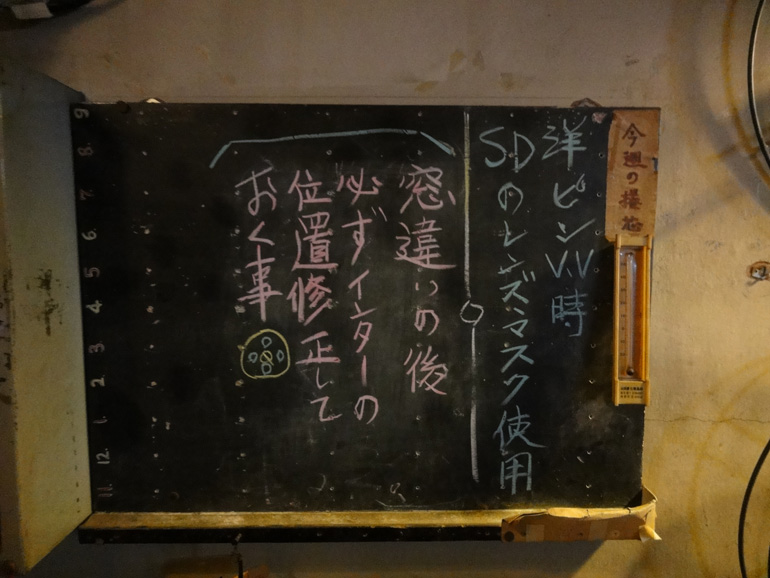 今週の操芯
洋ピンV.V時
SDのレンズマスク使用
窓違いの後
必ずインターの
位置修正して
おく事
9
8.
7.
6.
5
4
3.
2
1.
12.
11.